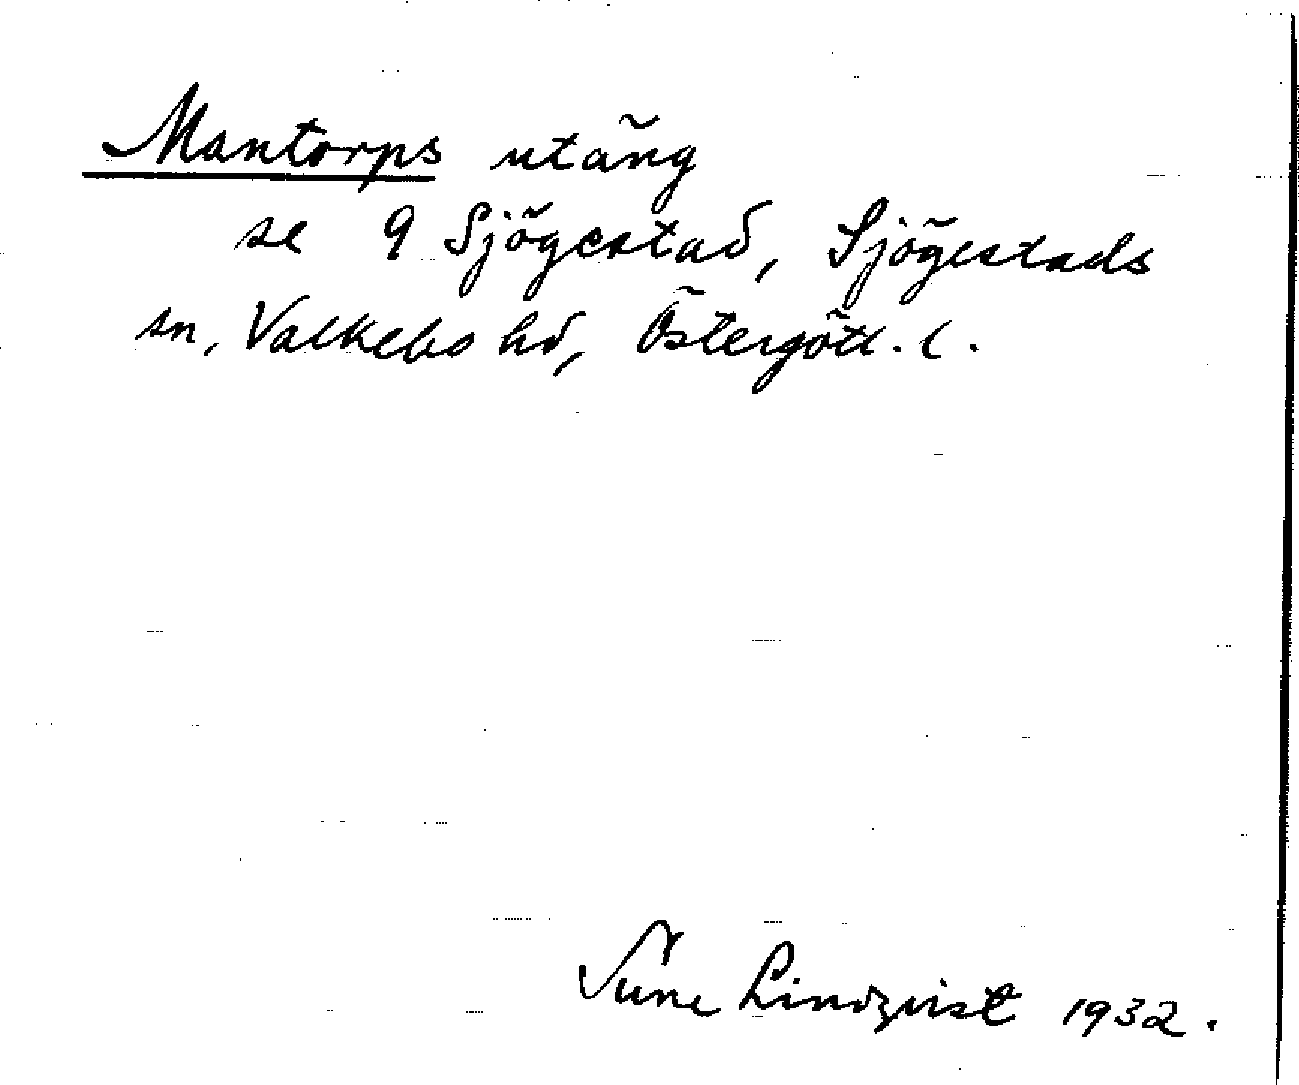 Mantorps utäng
se 9 Sjögestad, Sjögestads
sn, Valkebo hd, Östergötl. l.
Sune Lindqvist 1932.